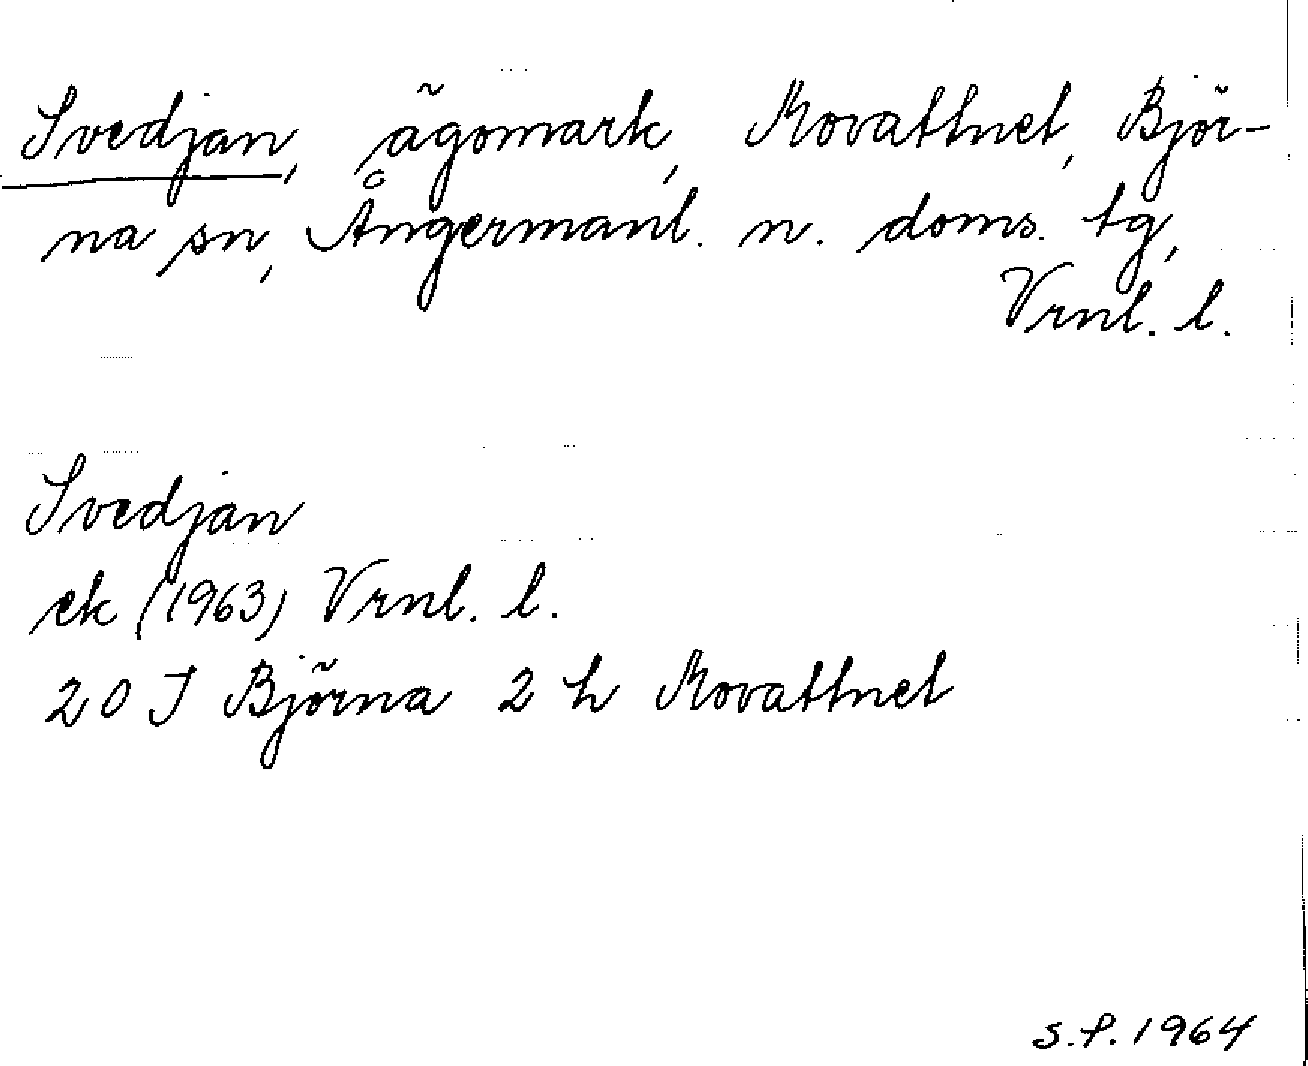 Svedjan, ägomark, Movattnet, Björ-
na sn, Ångermanl. n. doms. tg,
Vrnl. l.
Svedjan
ek (1963) Vrnl. l.
20 J Björna 2 h Movattnet
S.P. 1964